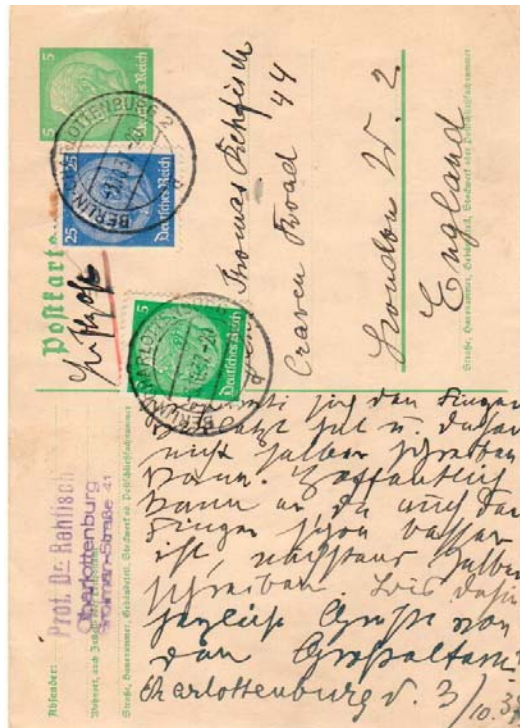 Postkarte
Luftpost
5 Deutsches Reich 5
25 Deutsches Reich 25
5 Deutsches Reich
BERLIN-CHARLOTTENBURG 2
Thomas Rehfisch
Craven Road 44
London W. 2.
England
Straße, Hausnummer, Gebäudeteil, Stockwerk oder Postschließfachnummer
Absender:
Prof. Dr. Rehfisch
Charlottenburg
Straße 41
Wohnort, auch Zustell-
Straße, Hausnummer, Gebäudeteil, Stockwerk od. Postschließfachnummer
sich den Finger
verletzt hat u. daher
nicht selber schreiben
kann. Hoffentlich
kann er da auch der
Finger schon besser
ist, nächstens selber
schreiben. Bis dahin
herzliche Grüße von
den Großeltern.
Charlottenburg d. 3/10.3